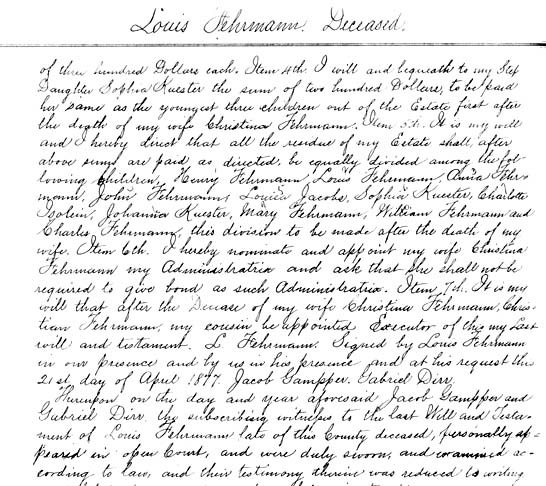 Louis Fehrmann. Deceased.
of three hundred Dollars each. Item 4th. I will and bequeath to my Step
Daughter Sophia Kuester the sum of two hundred Dollars, to be paid
her same as the youngest three children out of the Estate first after
the death of my wife Christina Fehrmann. Item 5th. It is my will
and I hereby direct that all the residue of my Estate shall, after
above sums are paid as directed, be equally divided among the fol-
lowing children, Henry Fehrmann, Louis Fehrmann, Anna Fehr-
mann, John Fehrmann, Louisa Jacobs, Sophia Kuester, Charlotte
Isolein, Johanna Kuester, Mary Fehrmann, William Fehrmann and
Charles Fehrmann, this division to be made after the death of my
wife. Item 6th. I hereby nominate and appoint my wife Christina
Fehrmann my Administratrix and ask that she shall not be
required to give bond as such Administratrix. Item 7th. It is my
will that after the Decease of my wife Christina Fehrmann, Chris-
tian Fehrmann, my cousin be appointed Executor of this my Last
will and testament. L. Fehrmann. Signed by Louis Fehrmann
in our presence and by us in his presence and at his request this
21st day of April 1877. Jacob Gampper. Gabriel Dirr.
Thereupon on the day and year aforesaid Jacob Gampper and
Gabriel Dirr, the subscribing witnesses to the last Will and Testa-
ment of Louis Fehrmann late of this County deceased, personally ap-
peared in open Court, and were duly sworn, and examined ac-
cording to law, and their testimony therein was reduced to writing